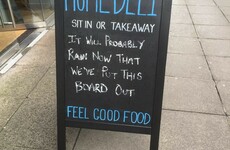 HOME DELI
SIT IN OR TAKEAWAY
IT WILL PROBABLY
RAIN NOW THAT
WE'VE PUT THIS
BOARD OUT
FEEL GOOD FOOD